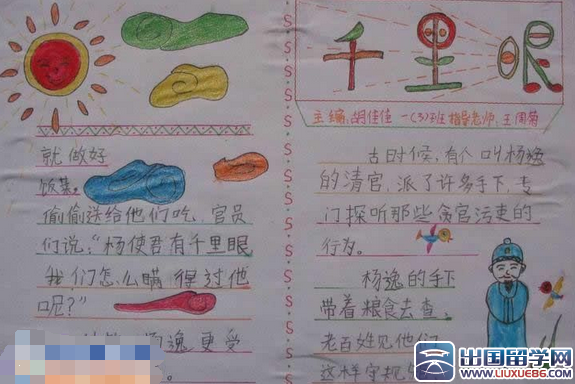 千里眼
主编:胡佳佳 一(3)班 指导老师:王周菊
古时候,有个叫杨逸
的清官,派了许多手下,专
门探听那些贪官污吏的
行为。
杨逸的手下
带着粮食去查,
老百姓见他们
这样守规
就做好
饭菜,
偷偷送给他们吃。官员
们说:“杨使君有千里眼
我们怎么瞒得过他
呢?”
杨逸更受
出国留学网
WWW.LIUXUE86.COM